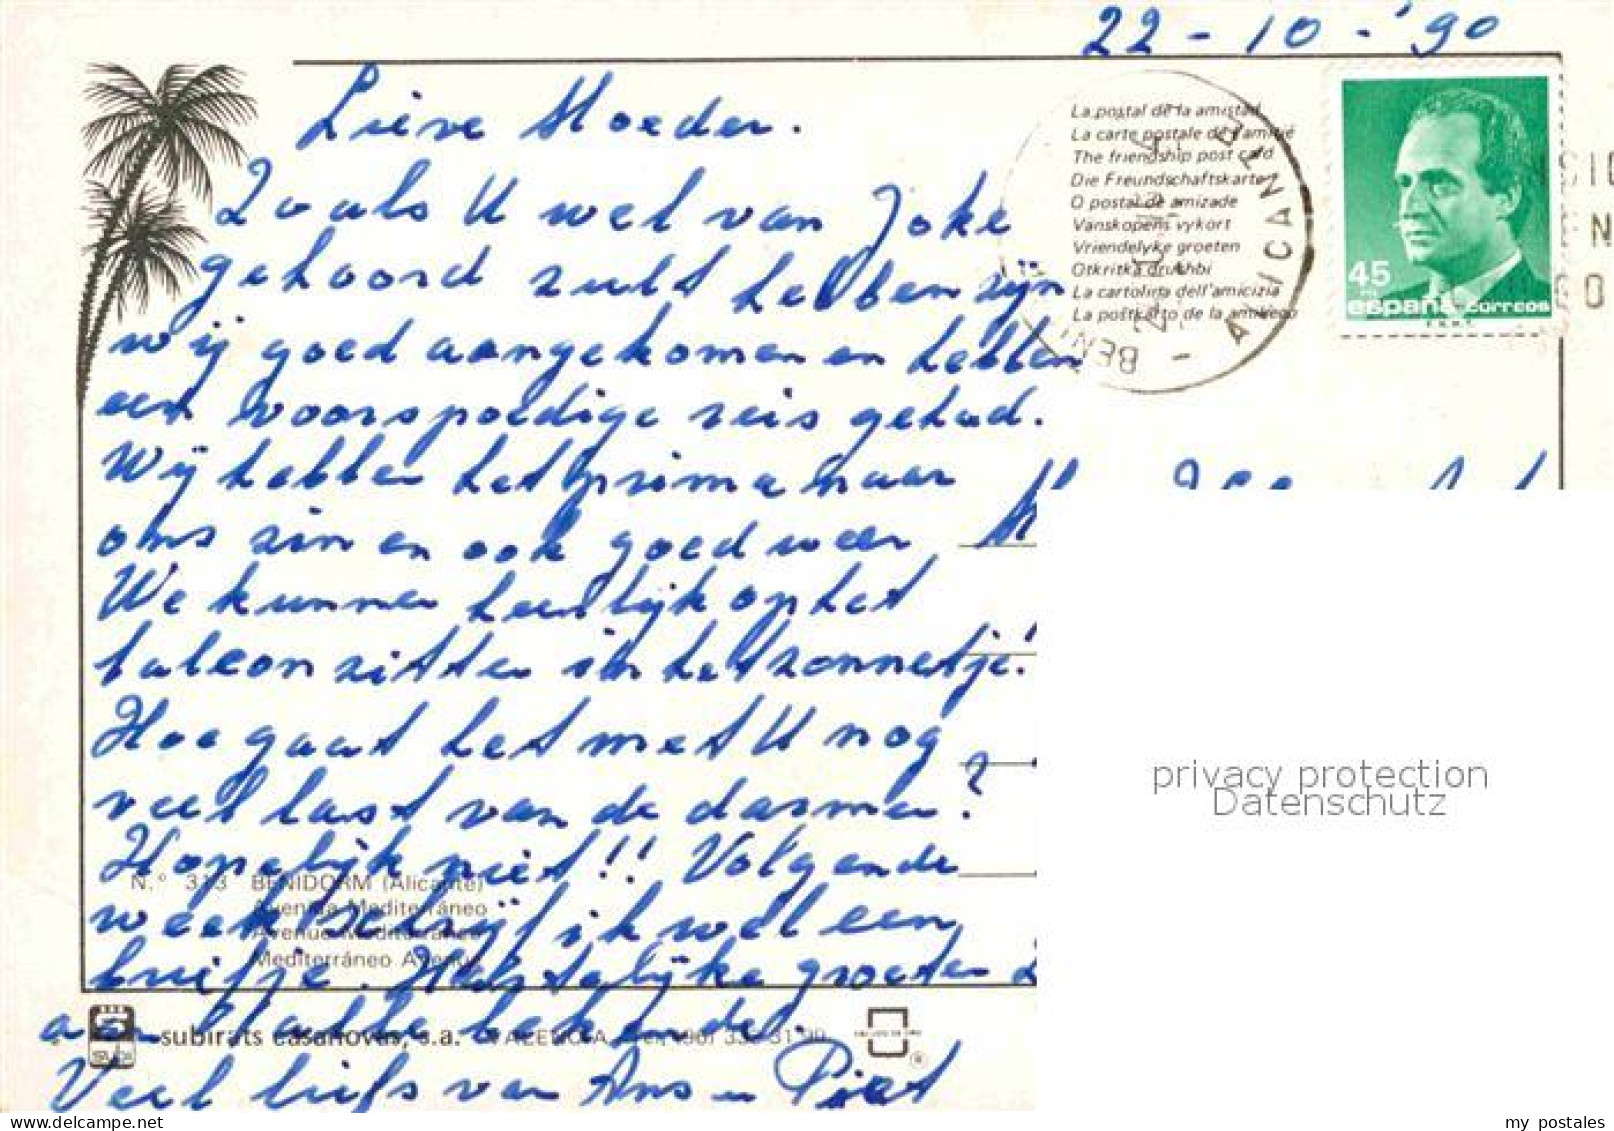 22-10-'90
Lieve Moeder.
Zoals U wel van Joke
gehoord zult hebben zijn
wij goed aangekomen en hebben
een voorspoedige reis gehad.
Wij hebben het prima naar
ons zin en ook goed weer
We kunnen heerlijk op het
balcon zitten in het zonnetje!
Hoe gaat het met U nog
veel last van de darmen?
Hopelijk niet!! Volgende
week schrijf ik wel een
briefje. Hartelijke groeten
aan alle bekenden.
Veel liefs van Ans en Piet
La postal de la amistad
La carte postale de l'amitié
The friendship post card
Die Freundschaftskarte
O postal de amizade
Vanskopens vykort
Vriendelyke groeten
Otkritka druzhbi
La cartolina dell'amicizia
La poŝtkarto de la amikeco
BENI
ALICANTE
45
españa correos
F.N.M.T.
N.° 313 BENIDORM (Alicante)
Avenida Mediterráneo
Avenue Mediterráneo
Mediterráneo Avenue
subirats casanovas, s.a. VALENCIA
privacy protection
Datenschutz
www.delcampe.net
my_postales